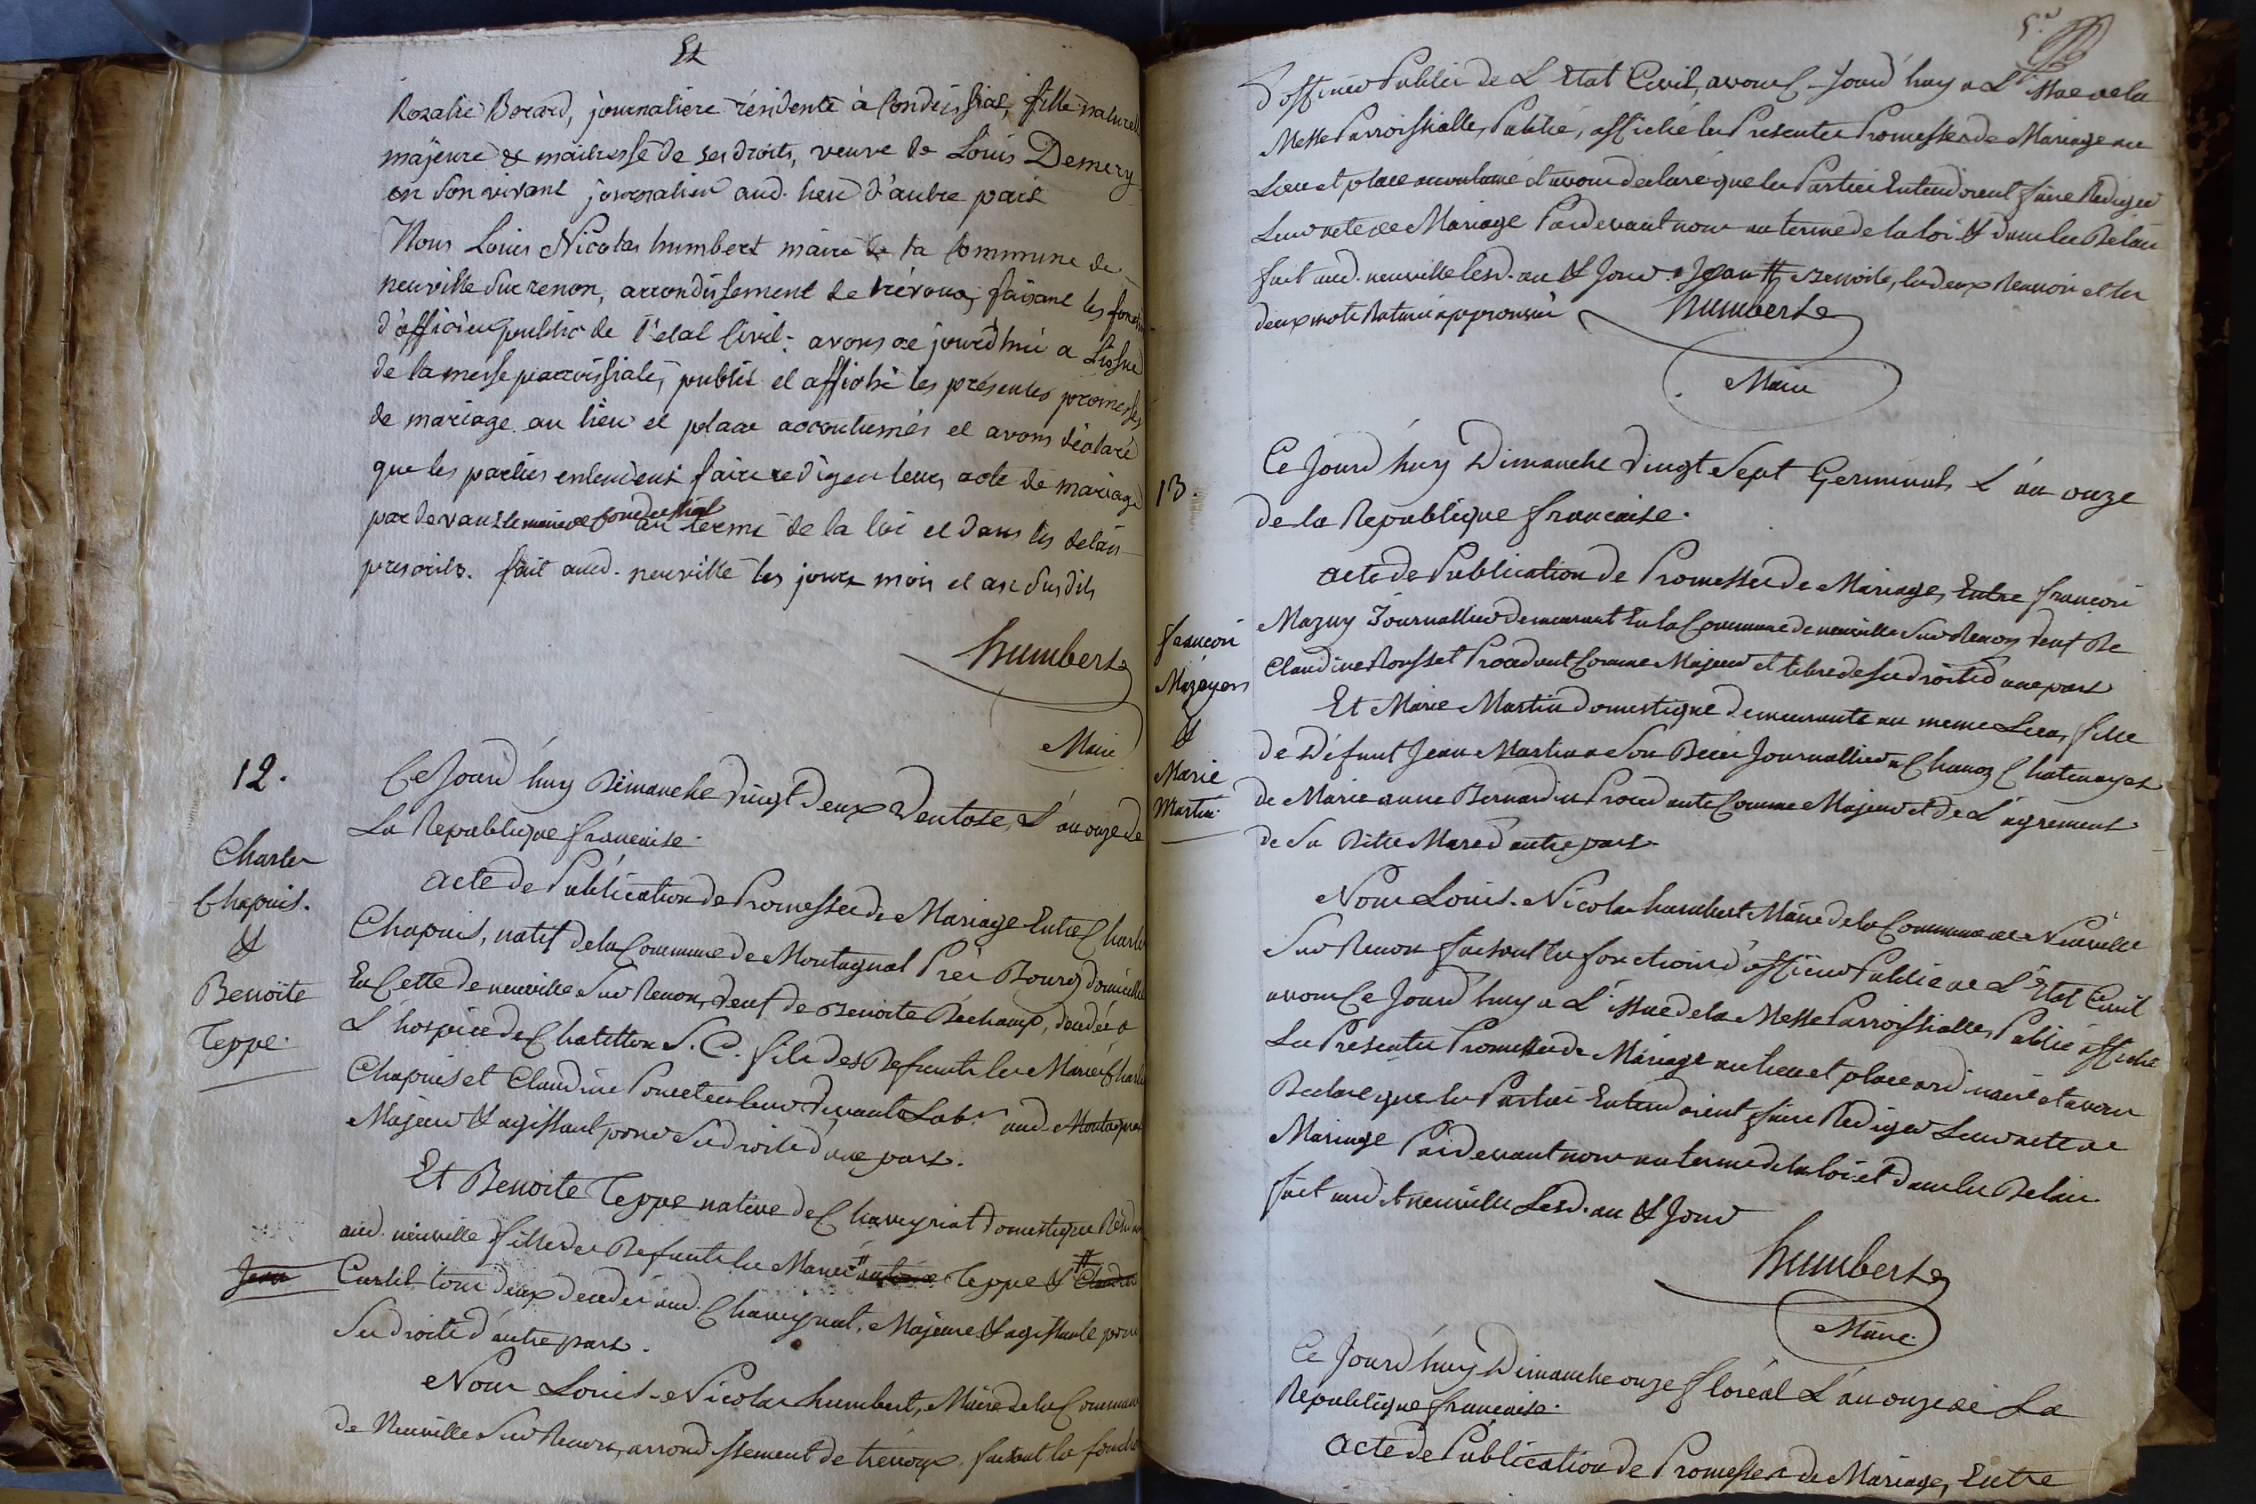 Et
Rozalie Berard, journaliere résidente à Condeissiat, fille naturelle
majeure & maitresse de ses droits, veuve de Louis Demery
en son vivant journalier aud. lieu d'autre part
Nous Louis Nicolas humbert maire de la Commune de
neuville sur renon, arrondissement de trévoux, faisant les fonctions
d'officier public de l'etat Civil; avons ce jourd'hui a L'issue
de la messe parroissiale, publié et affiché les présentes promesses
de mariage au lieu et place accoutumés et avons déclaré
que les parties entendent faire rediger leur acte de mariage
par devant le maire de Condeissiat au terme de la loi et dans les delais
prescrits. fait aud. neuville les jours mois et an susdits
humbert
Maire
12.
Charles
Chapuis.
&
Benoite
Teppe.
Ce Jourd'huy Dimanche vingt deux Ventose, L'an onze de
La Republique francaise.
acte de Publication de Promesses de Mariage Entre Charles
Chapuis, natif de la Commune de Montagnat Près Bourg domicilié
En Cette de neuville Sur Renon, veuf de Benoite Béchamp, décédée a
L'hospice de Chatillon S. C. fils des Defunts les Mariés Charles
Chapuis et Claudine Poncet en leur vivant Lab.rs aud. Montagnat
Majeur & agissant pour Ses droits d'une part.
Et Benoite Teppe native de Chaveyriat domestique Résidante
aud. neuville fille des Defunts les Mariés Teppe &
Jean
Curtil tous deux décédés aud. Chaveyriat, Majeure & agissante pour
Ses droits d'autre part.
Nous Louis-Nicolas humbert, Maire de la Commune
de Neuville Sur Renon, arrondissement de trevoux, faisant les fonctions
5.e
d'officier Public de L'Etat Civil, avons Ce Jourd'huy a L'issue de la
Messe Parroissialle, Publié, affiché les Presentes Promesses de Mariage au
Lieu et place accoutumé et avons declaré que les Parties Entendoient faire Rediger
Leur acte de Mariage Pardevant nous au terme de la loi & dans les Delais
fait aud. neuville lesd. an & Jour # Jean # Benoite, les deux Renvois et les
deux mots Raturés approuvés
humbert
Maire
13.
francois
Mazuyers
&
Marie
Martin.
Ce Jourd'huy Dimanche vingt Sept Germinal L'an onze
de la Republique francaise.
acte de Publication de Promesses de Mariage, Entre francois
Mazuy Journallier demeurant En la Commune de neuville Sur Renon veuf De
Claudine Rousset Procedant Comme Majeur et libre de Ses droits d'une part
Et Marie Martin domestique demeurante au meme Lieu, fille
de Défunt Jean Martin a Son Décès Journallier a Chanoz Chatenay et
de Marie anne Bernardin Procedante Comme Majeure et de L'agrement
de Sa Ditte Mere d'autre part.
Nous Louis-Nicolas humbert Maire de la Commune de Neuville
Sur Renon faisant les fonctions d'officier Public de L'Etat Civil
avons Ce Jourd'huy a L'issue de la Messe Parroissialle, Publié affiché
Les Présentes Promesses de Mariage au lieu et place ordinaire et avons
Declaré que les Parties Entendoient faire Rediger Leur acte de
Mariage Pardevant nous au terme de la loi et dans les Delais.
fait audit neuville Lesd. an & Jour
humbert
Maire.
Ce Jourd'huy Dimanche onze floréal L'an onze de La
Republique francaise.
acte de Publication de Promesses de Mariage, Entre